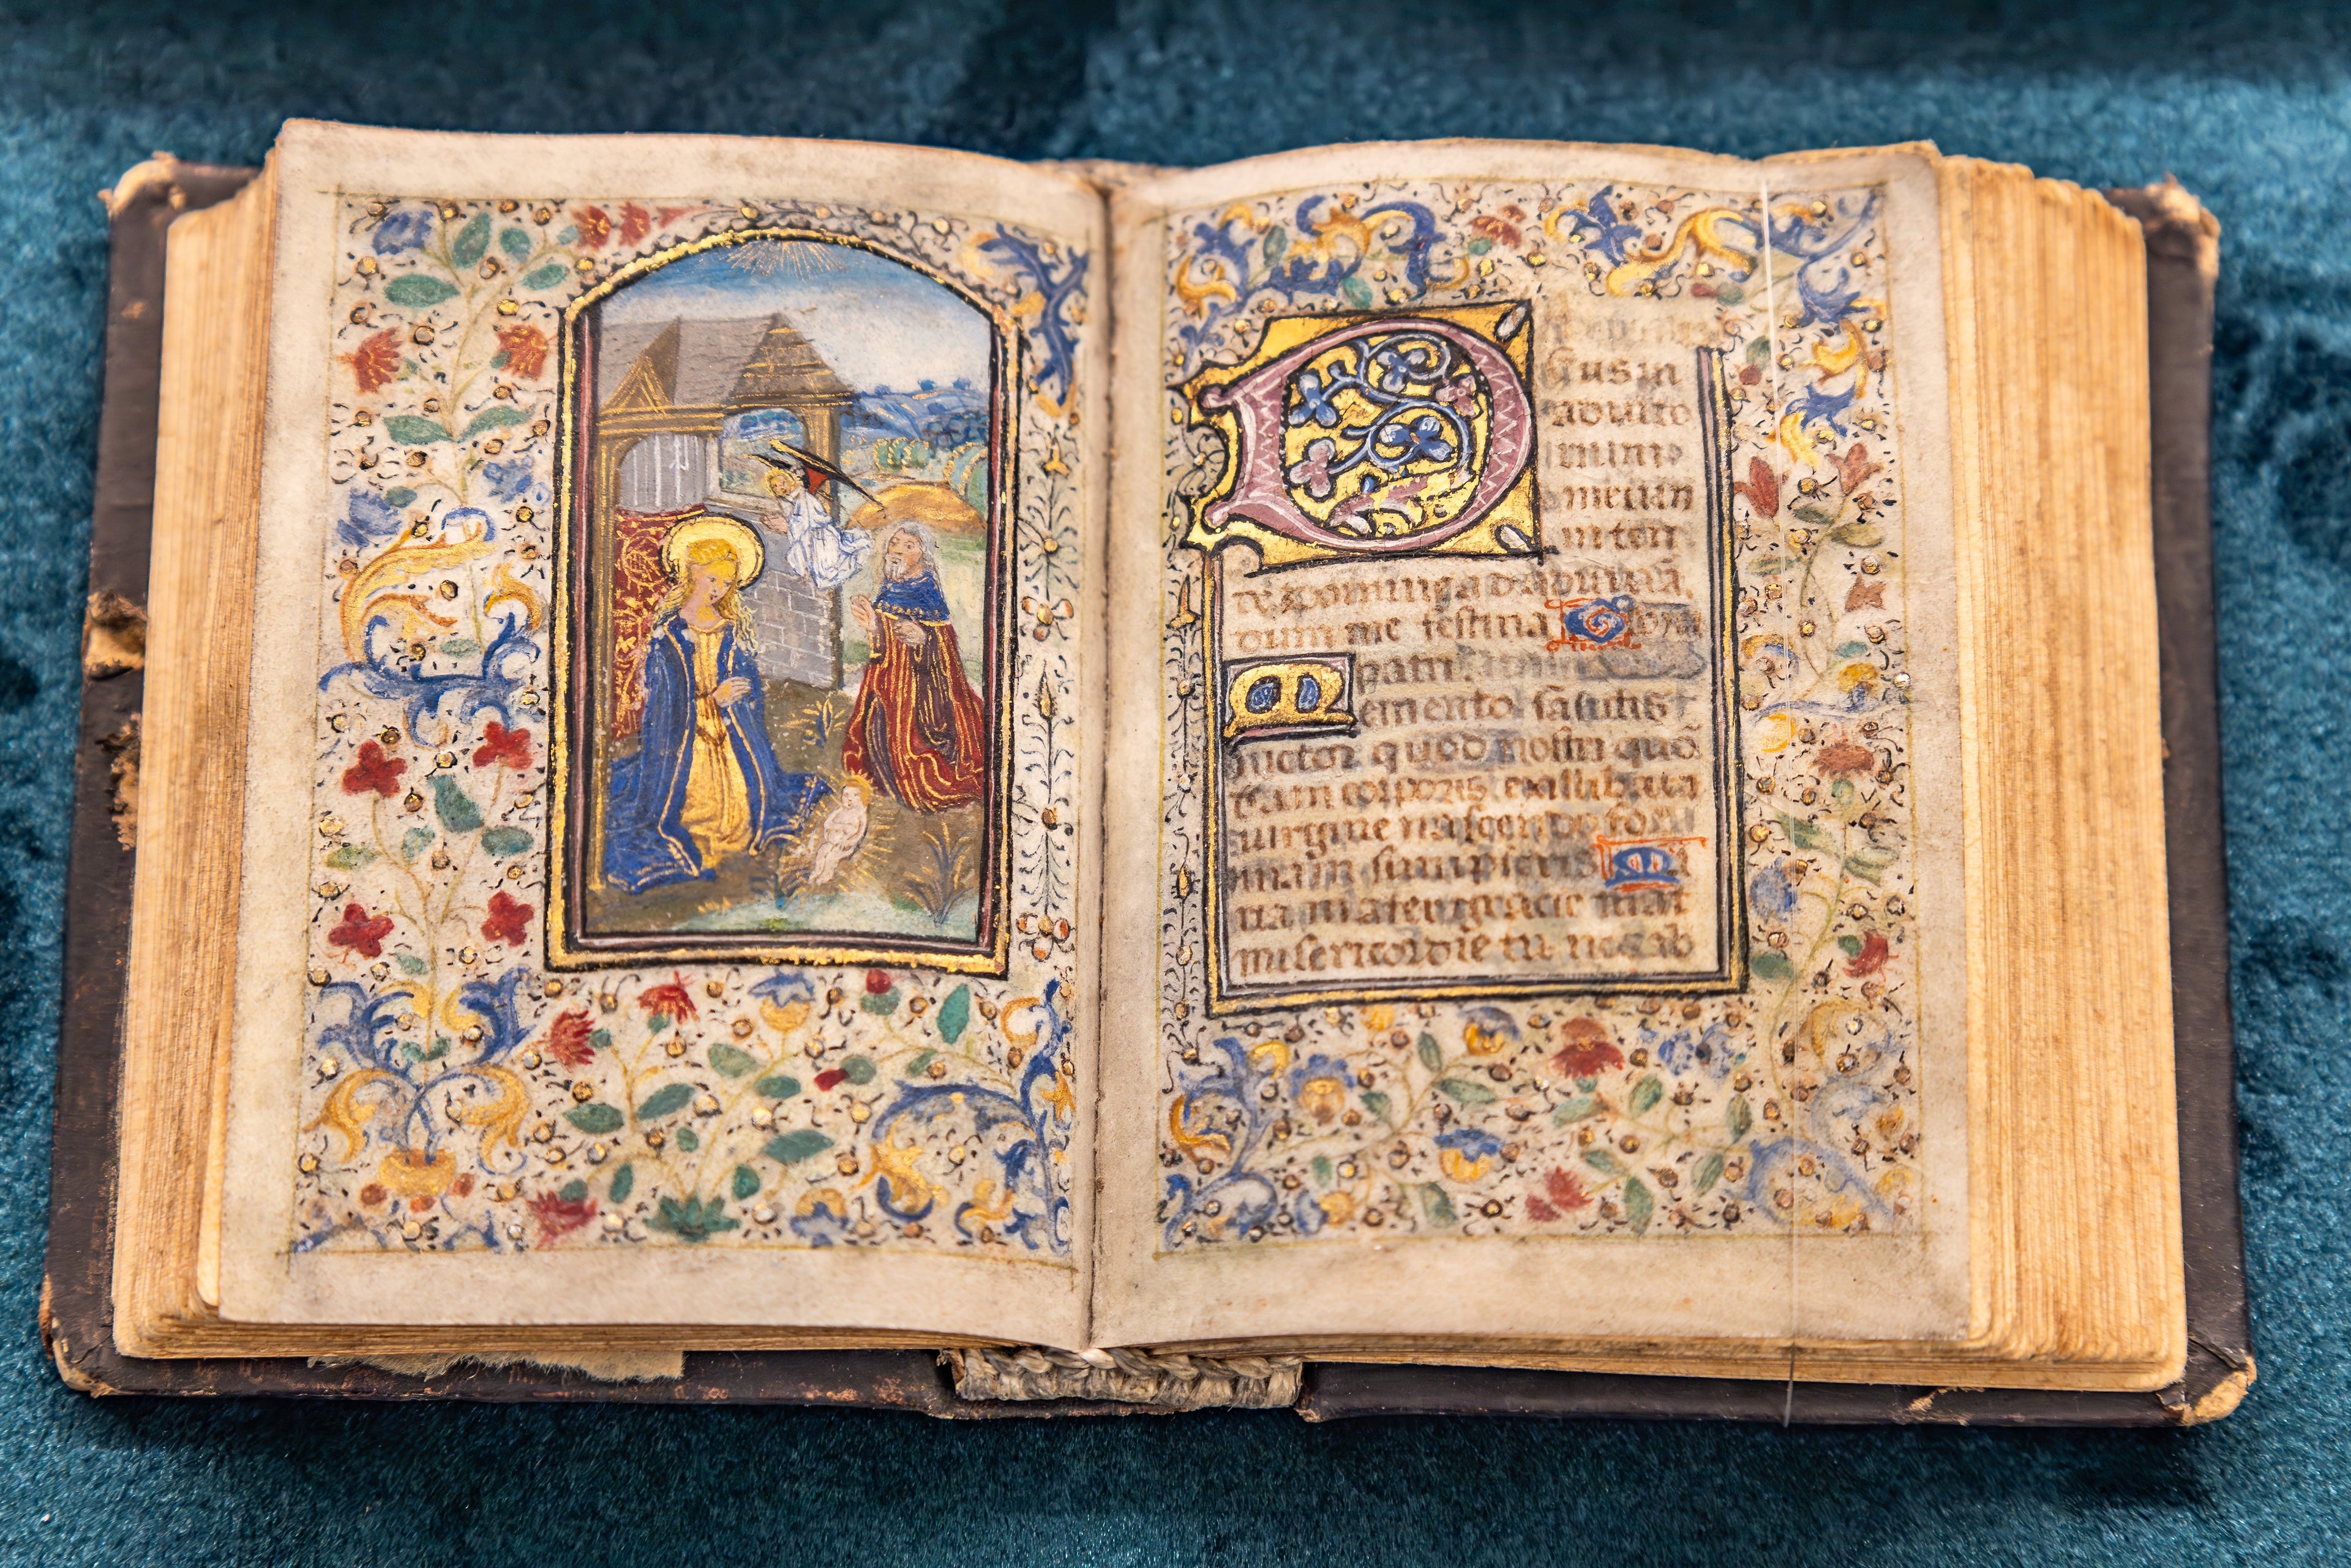 Deus in
adiuto
meum
inten
de domine ad
dum me festina Gloria
patri
Memento salutis
auctor quod nostri quō
dam corporis ex illibata
uirgine nascendo for
mam sumpseris Ma
ria mater gracie mat
misericordie tu nos ab